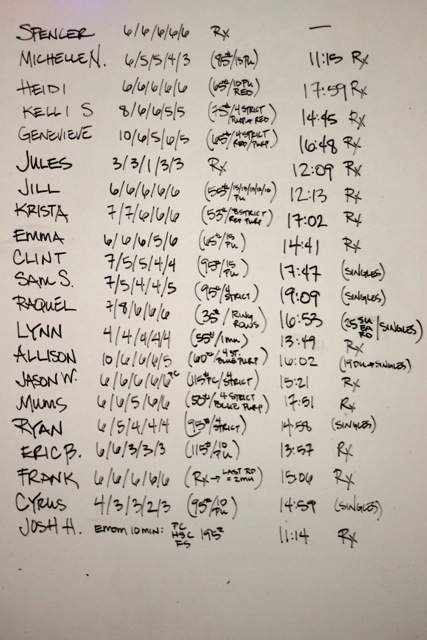 SPENCER 6/6/6/6/6 Rx —
MICHELLE N. 6/5/5/4/3 (85#/15 PU) 11:15 Rx
HEIDI 6/6/6/6/6 (65#/10 PU RED) 17:59 Rx
KELLI S 8/6/6/5/5 (75#/4 STRICT PURP+RED) 14:45 Rx
GENEVIEVE 10/6/5/6/5 (65#/4 STRICT RED/PURP) 16:48 Rx
JULES 3/3/1/3/3 Rx 12:09 Rx
JILL 6/6/6/6/6 PU) 12:13 Rx
KRISTA 7/7/6/6/6 (53#/8 STRICT RED PURP) 17:02 Rx
EMMA 6/6/6/5/6 (65#/15 PU) 14:41 Rx
CLINT 7/5/5/4/4 (95#/15 PU) 17:47 (SINGLES)
SAM S. 7/5/4/4/5 (95#/4 STRICT) 19:09 (SINGLES)
RAQUEL 7/8/6/6/6 (35#/RING ROWS) 16:53 /SINGLES)
LYNN 4/4/4/4/4 (55#/1 MU) 13:49 Rx
ALLISON 10/6/6/6/5 (60#/4 ST. BLUE PURP) 16:02 SINGLES)
JASON W. 6/6/6/6/6 PC (115# PC/4 STRICT) 15:21 Rx
MUMS 6/6/5/6/6 (50#/4 STRICT BLUE PURP) 17:51 Rx
RYAN 6/5/4/4/4 (95#/4 STRICT) 14:58 (SINGLES)
ERIC B. 6/6/3/3/3 (115#/10 PU) 13:57 Rx
FRANK 6/6/6/6/6 (Rx → LAST RD = 2MU) 15:06 Rx
CYRUS 4/3/3/2/3 (95#/10 PU) 14:59 (SINGLES)
JOSH H. EMOM 10 MIN: PC HSC FS 195# 11:14 Rx